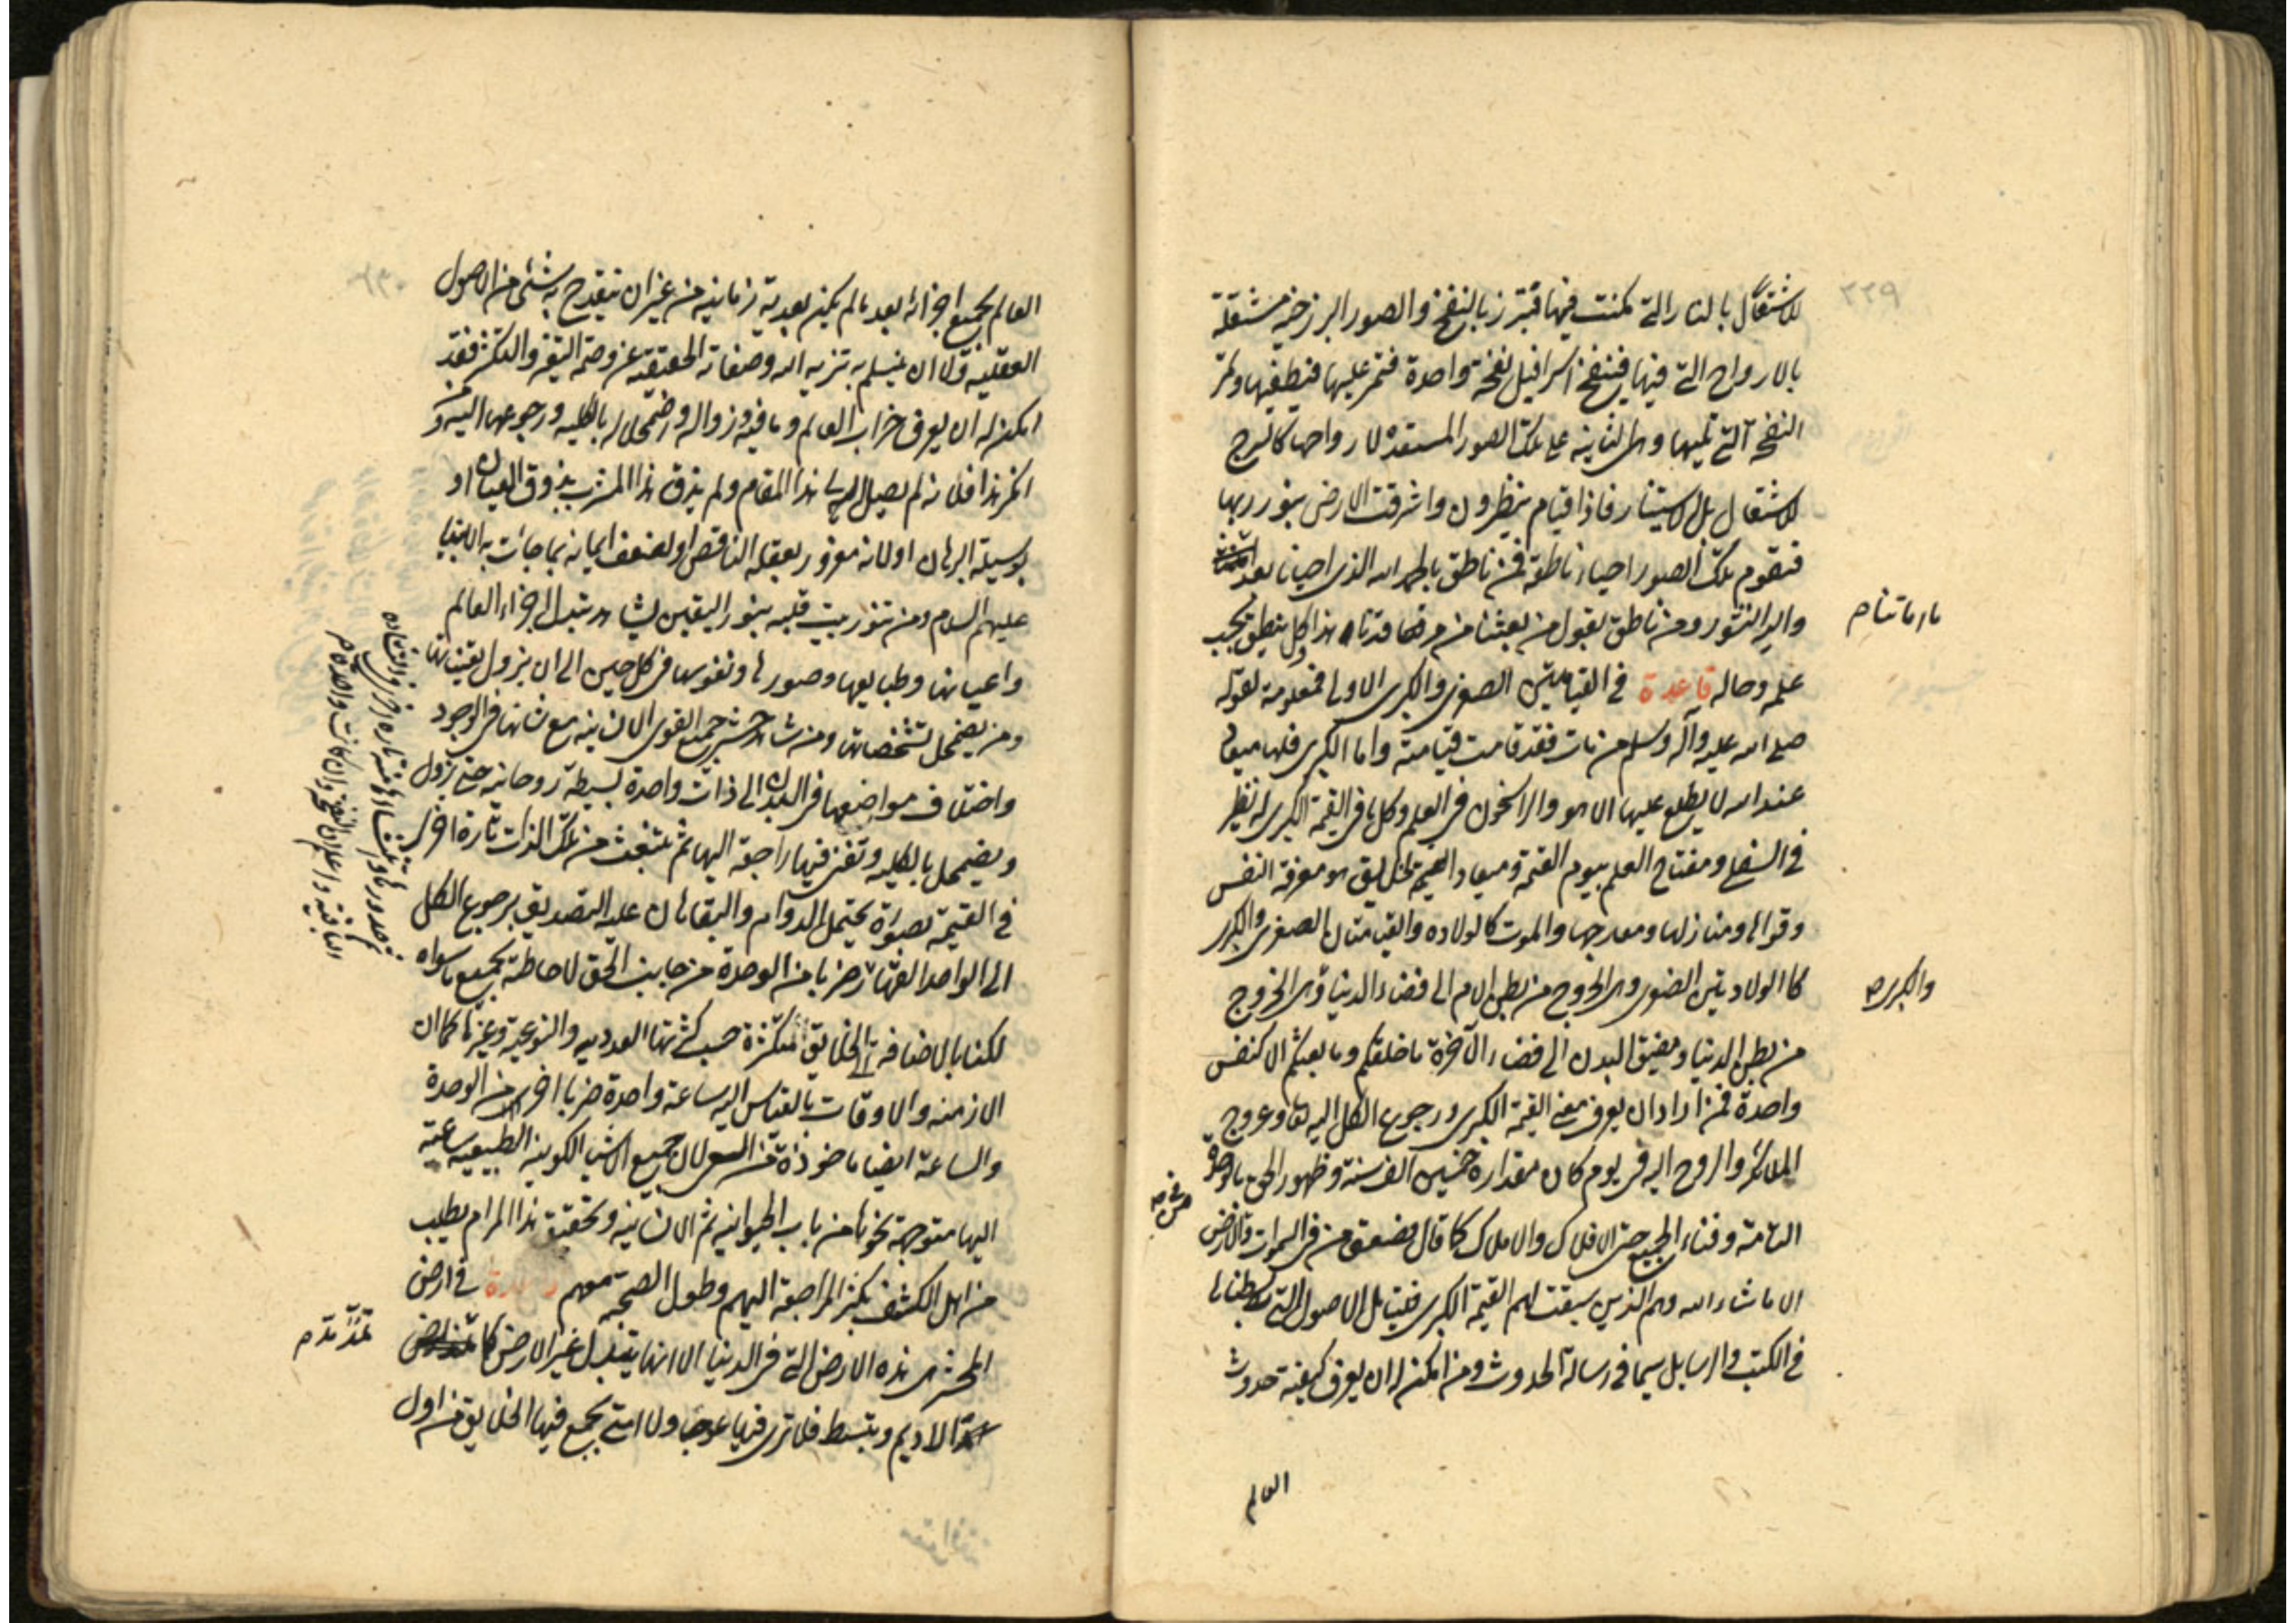 ٢٢٩
للاشتعال بالنار التي كمنت فيها فتبرز بالنفخ والصور البرزخيه مشتعلة
بالارواح التي فيها فينفخ اسرافيل نفخة واحدة فتمر عليها فتطفيها وتمر
النفخة التي تليها وهي الثانية على تلك الصور المستعده لارواحها كالسرج
للاشتعال بل الاستنار فاذا قيام ينظرون واشرقت الارض بنور ربها
فتقوم تلك الصور احياء ناطقة فمن ناطق بالحمد لله الذي احيانا بعد
ما اماتنا م
واليه النشور ومن ناطق يقول من بعثنا من مرقدنا هذا وكل ينطق بحسب
علمه وحاله قاعدة في القيامتين الصغرى والكبرى الاولى فمعلومة لقوله
صلى الله عليه وآله وسلم من مات فقد قامت قيامته واما الكبرى فلها ميعاد
عند الله لا يطلع عليها الا هو والراسخون في العلم وكل ما في القيمة الكبرى له نظير
في الصغرى ومفتاح العلم بيوم القيمة ومعاد الخلايق هو معرفة النفس
وقواها ومنازلها ومعارجها والموت كالولاده والقيامتان الصغرى والكبرى
كالولادتين الصغرى وهي الخروج من بطن الام الى فضاء الدنيا وهي الخروج
والكبرى م
من بطن الدنيا ومضيق البدن الى فضاء الآخرة ما خلقكم وما بعثكم الا كنفس
واحدة فمن اراد ان يعرف معنى القيمة الكبرى ورجوع الكل اليه تعا وعروج
الملائكة والروح اليه في يوم كان مقداره خمسين الف سنة وظهور الحق بالوحدة
التامة وفناء الجميع حتى الافلاك والاملاك كما قال فصعق من في السموات والارض
ومن في م
الا ما شاء الله وهم الذين سبقت لهم القيمة الكبرى فليتامل الاصول التي بسطناها
في الكتب والرسايل سيما في رسالة الحدوث ومن امكنه ان يعرف كيفية حدوث
العالم
العالم بجميع اجزائه بعد ما لم يكن بعدية زمانية من غير ان ينقدح به شئ من الاصول
العقليه ولا ان ينثلم به تنزيه الله وصفاته الحقيقيه عن وصمة التغير والتكثر فقد
امكن له ان يعرف خراب العالم وما فيه وزواله واضمحلاله بالكليه ورجوعها اليه ومن
انكر هذا فلانه لم يصل الى هذا المقام ولم يذق هذا المشرب بذوق العيان او
بوسيلة البرهان او لانه مغرور بعقله الناقص او لضعف ايمانه بما جائت به الانبياء
عليهم السلام ومن تنور بيت قلبه بنور اليقين يشاهد تبدل اجزاء العالم
واعيانها وطبايعها وصورها ونفوسها في كل حين الى ان يزول تعيناتها
ومن يضمحل تشخصاتها ومن شاهد حشر جميع القوى الانسانيه مع تباينها في الوجود
واختلاف مواضعها في البدن الى ذات واحدة بسيطة روحانيه حتى يزول
ويضمحل بالكليه وتفنى فيها راجعة اليها ثم تنبعث من تلك الذات تارة اخرى
في القيمة بصورة يحتمل الدوام والبقا هان عليه التصديق برجوع الكل
الى الواحد القهار ضربا من الوحدة من جانب الحق لاحاطته بجميع ما سواه
لكنها بالاضافه الى الخلايق المتكثرة حسب كثرتها العدديه والنوعية وغيرها كما ان
الازمنه والاوقات بالقياس اليه ساعة واحدة ضربا اخر من الوحدة
والساعة ايضا ماخوذة من السعى لان جميع الاشياء الكونيه الطبيعيه ساعية
اليها متوجهة نحوها من باب الحيوانيه ثم الانسانيه وتحقيق هذا المرام يطلب
من اهل الكشف بكثرة المراجعة اليهم وطول الصحبة معهم قاعدة في ارض
المحشر هي هذه الارض التي في الدنيا الا انها يتبدل غير الارض كما
تمد مد م
الاديم وتبسط فلا ترى فيها عوجا ولا امتا يجمع فيها الخلايق من اول